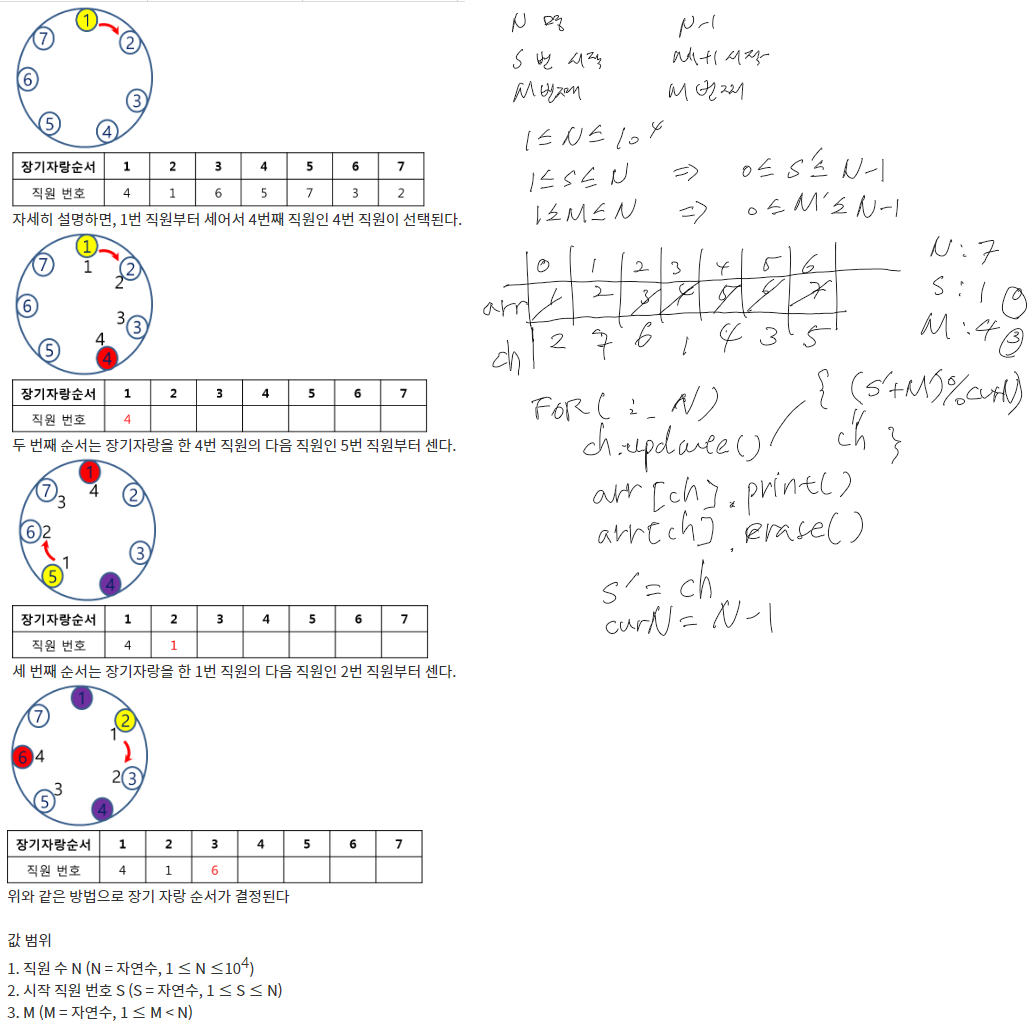 1
7 2
6
3
5
4
장기자랑순서 1 2 3 4 5 6 7
직원 번호 4 1 6 5 7 3 2
자세히 설명하면, 1번 직원부터 세어서 4번째 직원인 4번 직원이 선택된다.
1
7 1 2
2
6 3 3
4
5 4
장기자랑순서 1 2 3 4 5 6 7
직원 번호 4
두 번째 순서는 장기자랑을 한 4번 직원의 다음 직원인 5번 직원부터 센다.
1
7 3 4 2
6 2
1 3
5 4
장기자랑순서 1 2 3 4 5 6 7
직원 번호 4 1
세 번째 순서는 장기자랑을 한 1번 직원의 다음 직원인 2번 직원부터 센다.
1
7 2
1
6 4 2 3
3
5 4
장기자랑순서 1 2 3 4 5 6 7
직원 번호 4 1 6
위와 같은 방법으로 장기 자랑 순서가 결정된다
값 범위
1. 직원 수 N (N = 자연수, 1 ≤ N ≤10^4)
2. 시작 직원 번호 S (S = 자연수, 1 ≤ S ≤ N)
3. M (M = 자연수, 1 ≤ M < N)
N 명 N-1
S 번 시작 M+1 시작
M번째 M 번째
1 ≤ N ≤ 10^4
1 ≤ S ≤ N => 0 ≤ S' ≤ N-1
1 ≤ M ≤ N => 0 ≤ M' ≤ N-1
0 1 2 3 4 5 6
arr 1 2 3 4 5 6 7
ch 2 7 6 1 4 3 5
N : 7
S : 1 0
M : 4 3
FOR( i_ N)
ch.update() { (S'+M')%curN)
ch }
arr[ch].print()
arr[ch].erase()
s' = ch
curN = N-1